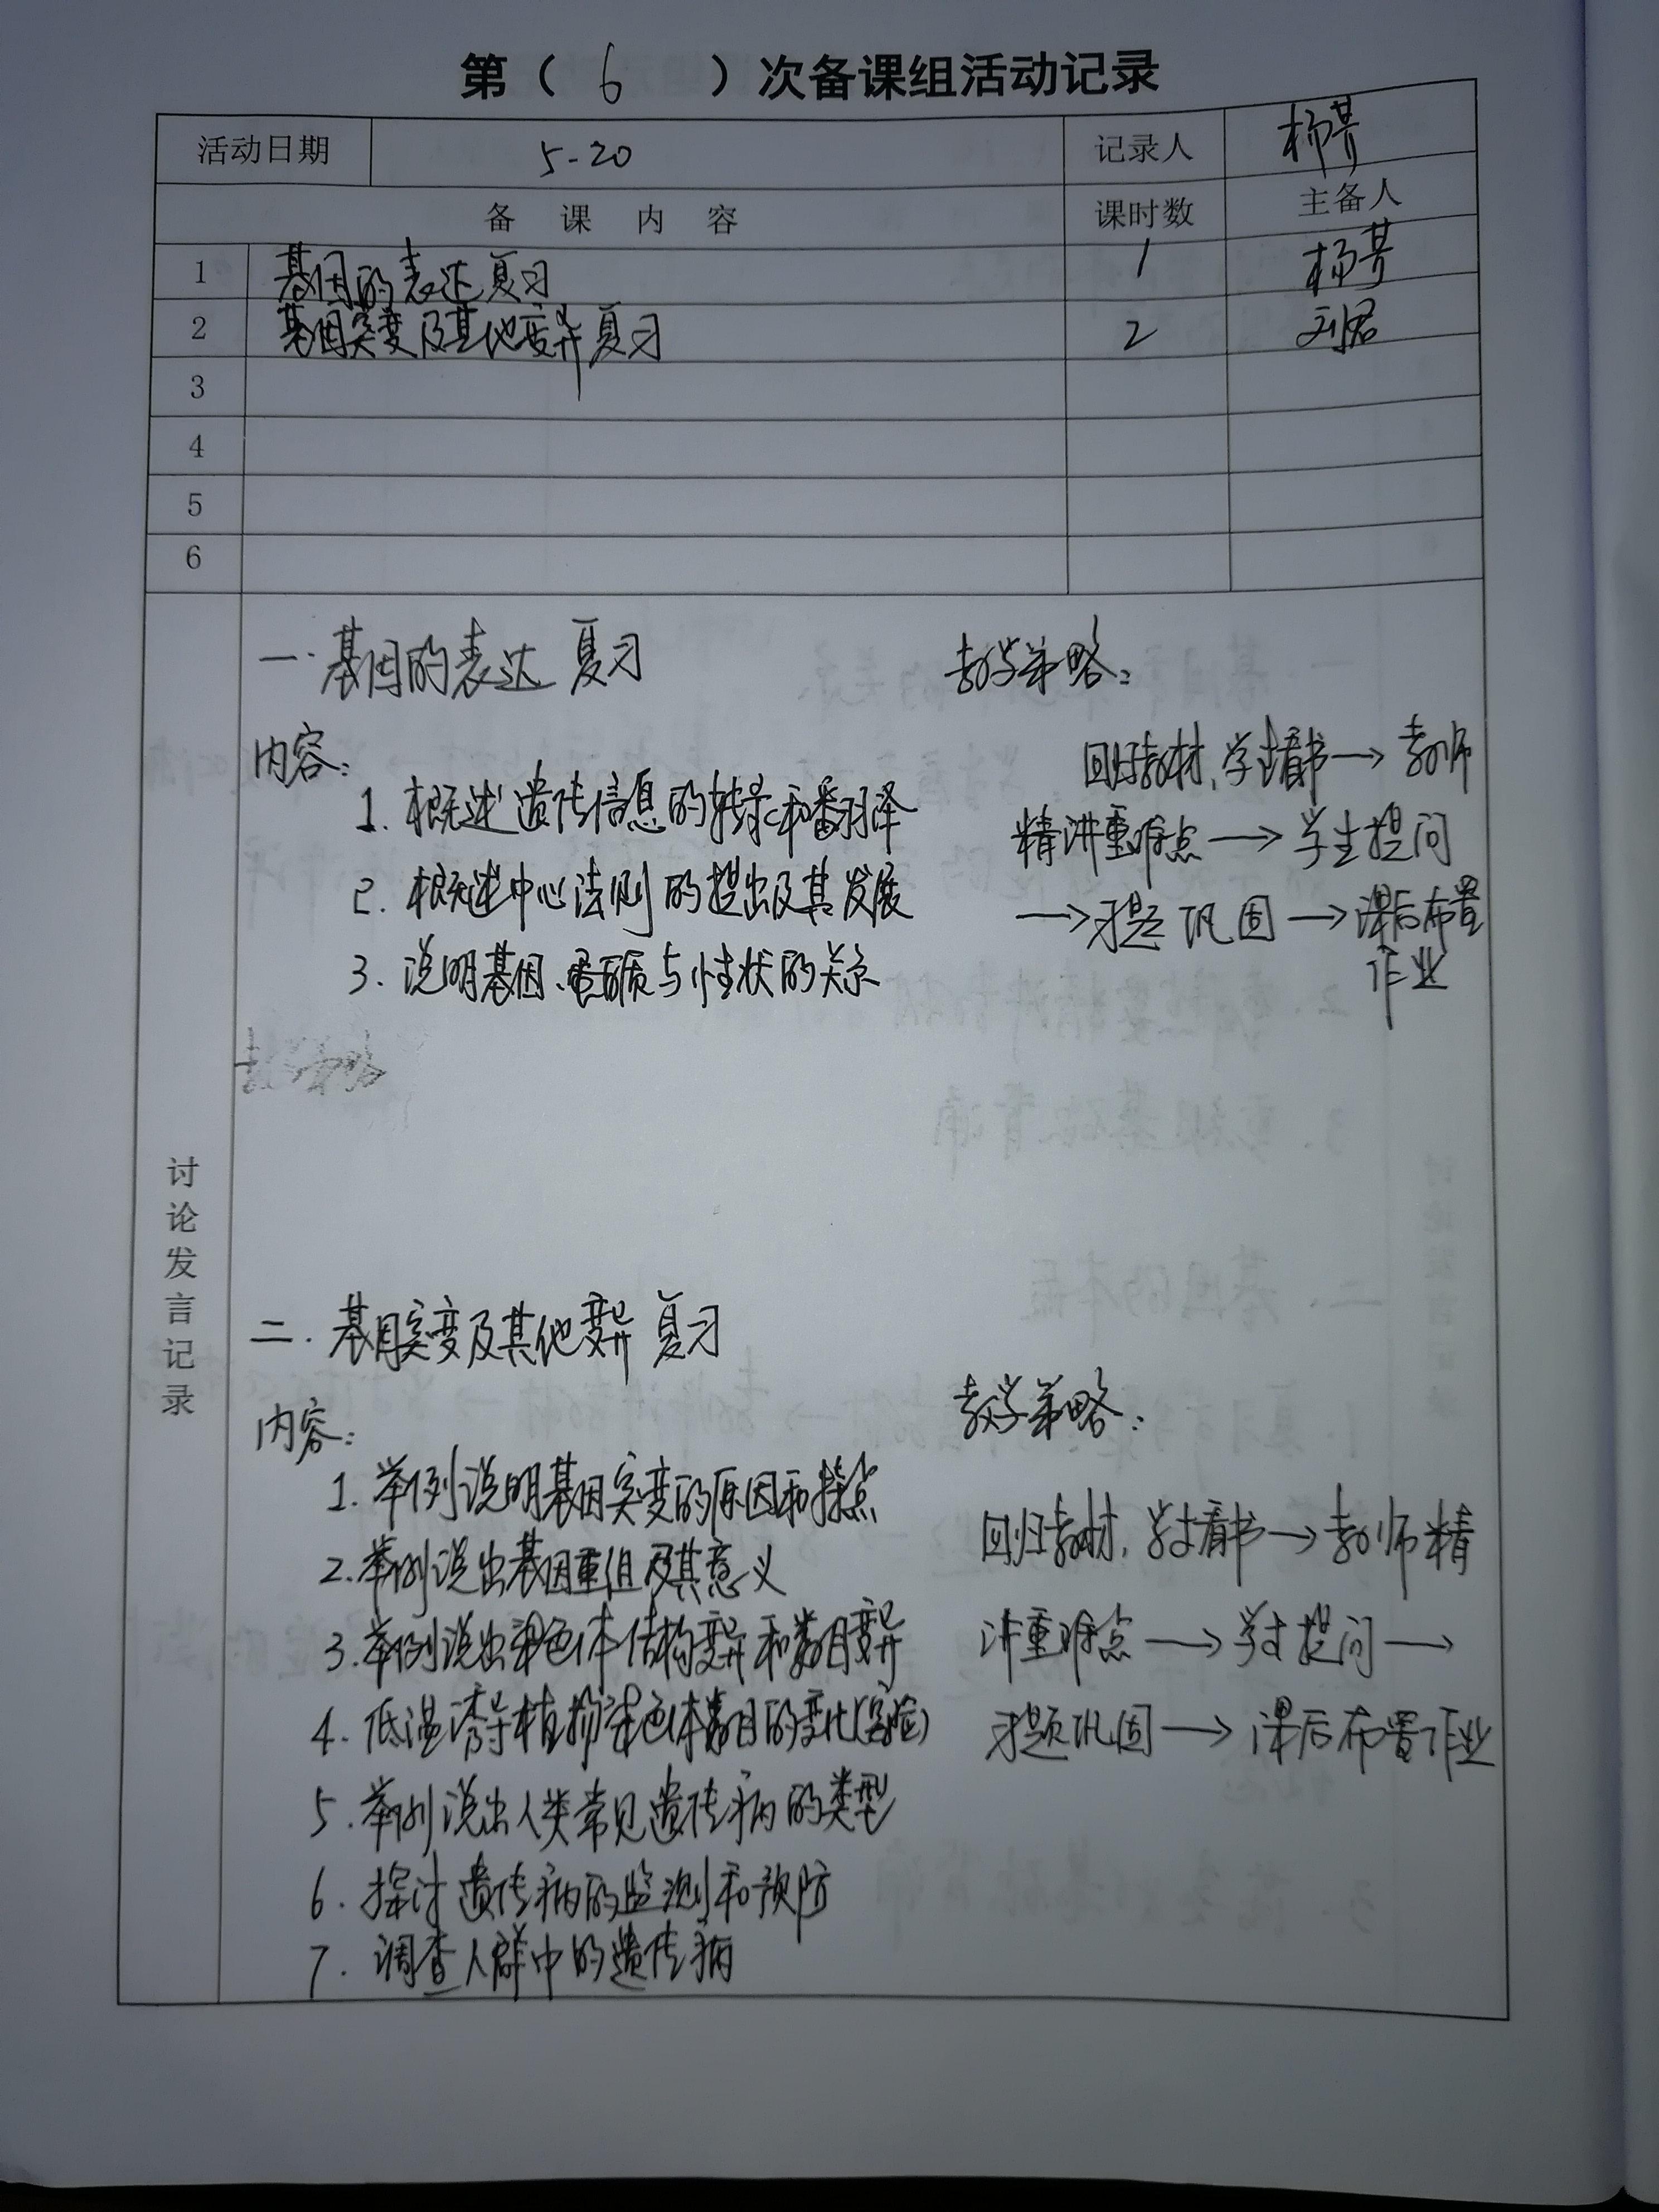 第（ 6 ）次备课组活动记录
活动日期 5-20 记录人 杨
备 课 内 容 课时数 主备人
1 基因的表达复习 1 杨
2 基因突变及其他变异复习 2 刘君
3
4
5
6
讨论发言记录
一.基因的表达 复习
内容:
1. 概述遗传信息的转录和翻译
2. 概述中心法则的提出及其发展
3. 说明基因、蛋白质与性状的关系
教学策略:
回归教材,学生看书→教师
精讲重难点→学生提问
→习题巩固→课后布置
作业
二.基因突变及其他变异 复习
内容:
1. 举例说明基因突变的原因和特点
2. 举例说出基因重组及其意义
3. 举例说出染色体结构变异和数目变异
4. 低温诱导植物染色体数目的变化(实验)
5. 举例说出人类常见遗传病的类型
6. 探讨遗传病的监测和预防
7. 调查人群中的遗传病
教学策略:
回归教材,学生看书→教师精
讲重难点→学生提问→
习题巩固→课后布置作业